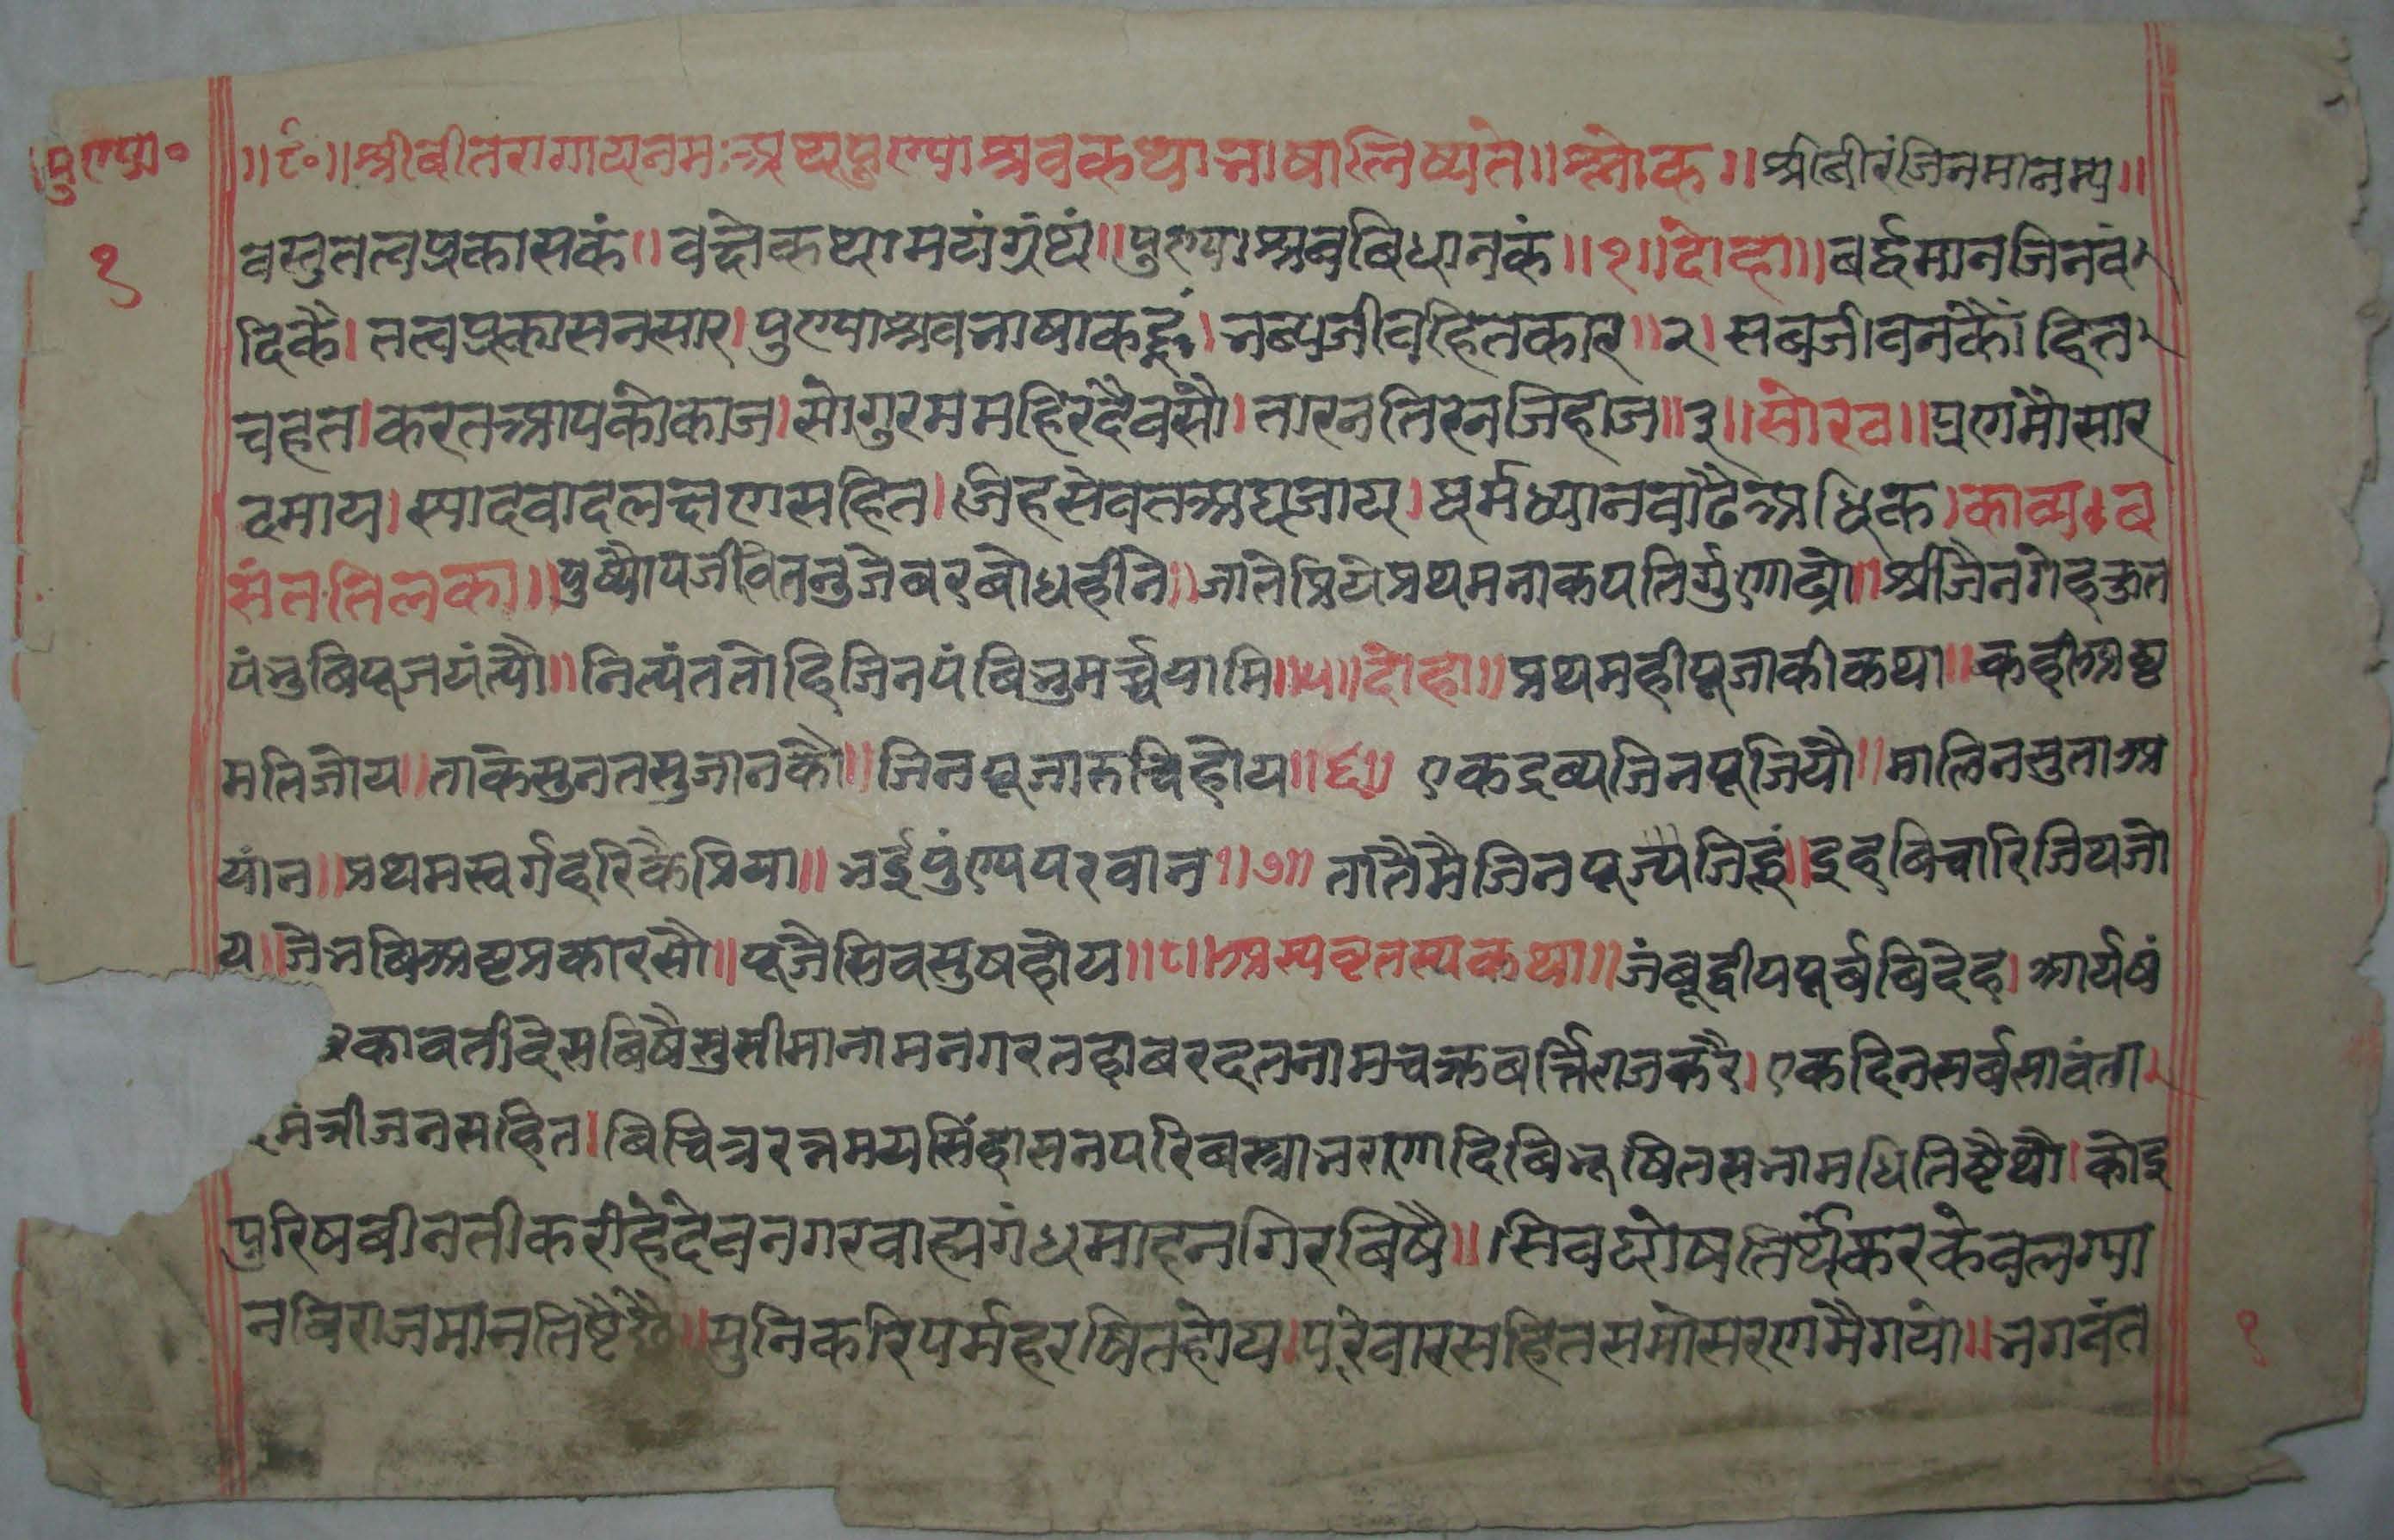 पुण्या॰
॥ ੬੦ ॥ श्रीवीतरागायनमः अथपुण्याश्रवकथाभाषालिष्यते ॥ श्लोक ॥ श्रीबीरंजिनमानम्य ॥
१
वस्तुतत्वप्रकासकं ॥ वक्षेकथामयंग्रंथं ॥ पुण्याश्रवबिधानकं ॥ १ ॥ दोहा ॥ बर्द्धमानजिनबं
दिकै । तत्वप्रकासनसार । पुण्याश्रवभाषाकहूं । भब्यजीवहितकार ॥ २ । सबजीवनकौं हित
चहत । करतआपकोकाज । सोगुरममहिरदैवसौ । तारनतिरनजिहाज ॥ ३ ॥ सोरठा ॥ प्रणमौसार
दमाय । स्यादवादलक्षणसहित । जिहसेवतअघजाय । धर्मध्यानवाढैअधिक । काव्य । ब
संततिलका ॥ पुष्पोपजीवितनुजेबरबोधहीने ॥ जातेप्रियेप्रथमनाकपतिर्गुणाढ्ये ॥ श्रीजैनगेहकुत
पंभुबिपूजयंत्यौ ॥ नित्यंततोहिजिनपंबिभुमर्च्चयामि ॥ ५ ॥ दोहा ॥ प्रथमहीपूजाकीकथा ॥ कहीअष्ट
मतिजोय ॥ ताकेसुनतसुजानकौ ॥ जिनपूजारुचिहोय ॥ ६ ॥ एकद्रव्यजिनपूजियौ ॥ मालिनसुताअ
यांन ॥ प्रथमस्वर्गहरिकैप्रिया ॥ भईपुंण्यपरवान ॥ ७ ॥ तातैमैजिनपूज्यैजिहूं ॥ इहबिचारिजियजो
य ॥ जेभबिअष्टप्रकारसौ ॥ पूजैसिवसुषहोय ॥ ८ ॥ अस्यबृतस्यकथा ॥ जंबूद्वीपपूर्बबिदेह । आर्यषं
कावतीदेसबिषैसुसीमानामनगरतहाबरदतनामचक्रबर्त्तिराजकरै । एकदिनसर्बसावंता
मंत्रीजनसहित । बिचित्ररत्नमयसिंहासनपरिबस्त्राभरणादिबिभूषितसभामधितिष्टैथौ । कोइ
पुरिषबीनतीकरीहेदेवनगरवाह्यगंधमाहनगिरबिषै ॥ सिवघोषतिर्थंकरकेवलग्या
नबिराजमानतिष्टैछै ॥ सुनिकरिपर्महरषितहोय । परिवारसहितसमोसरणमैगयो ॥ भगवंत
१